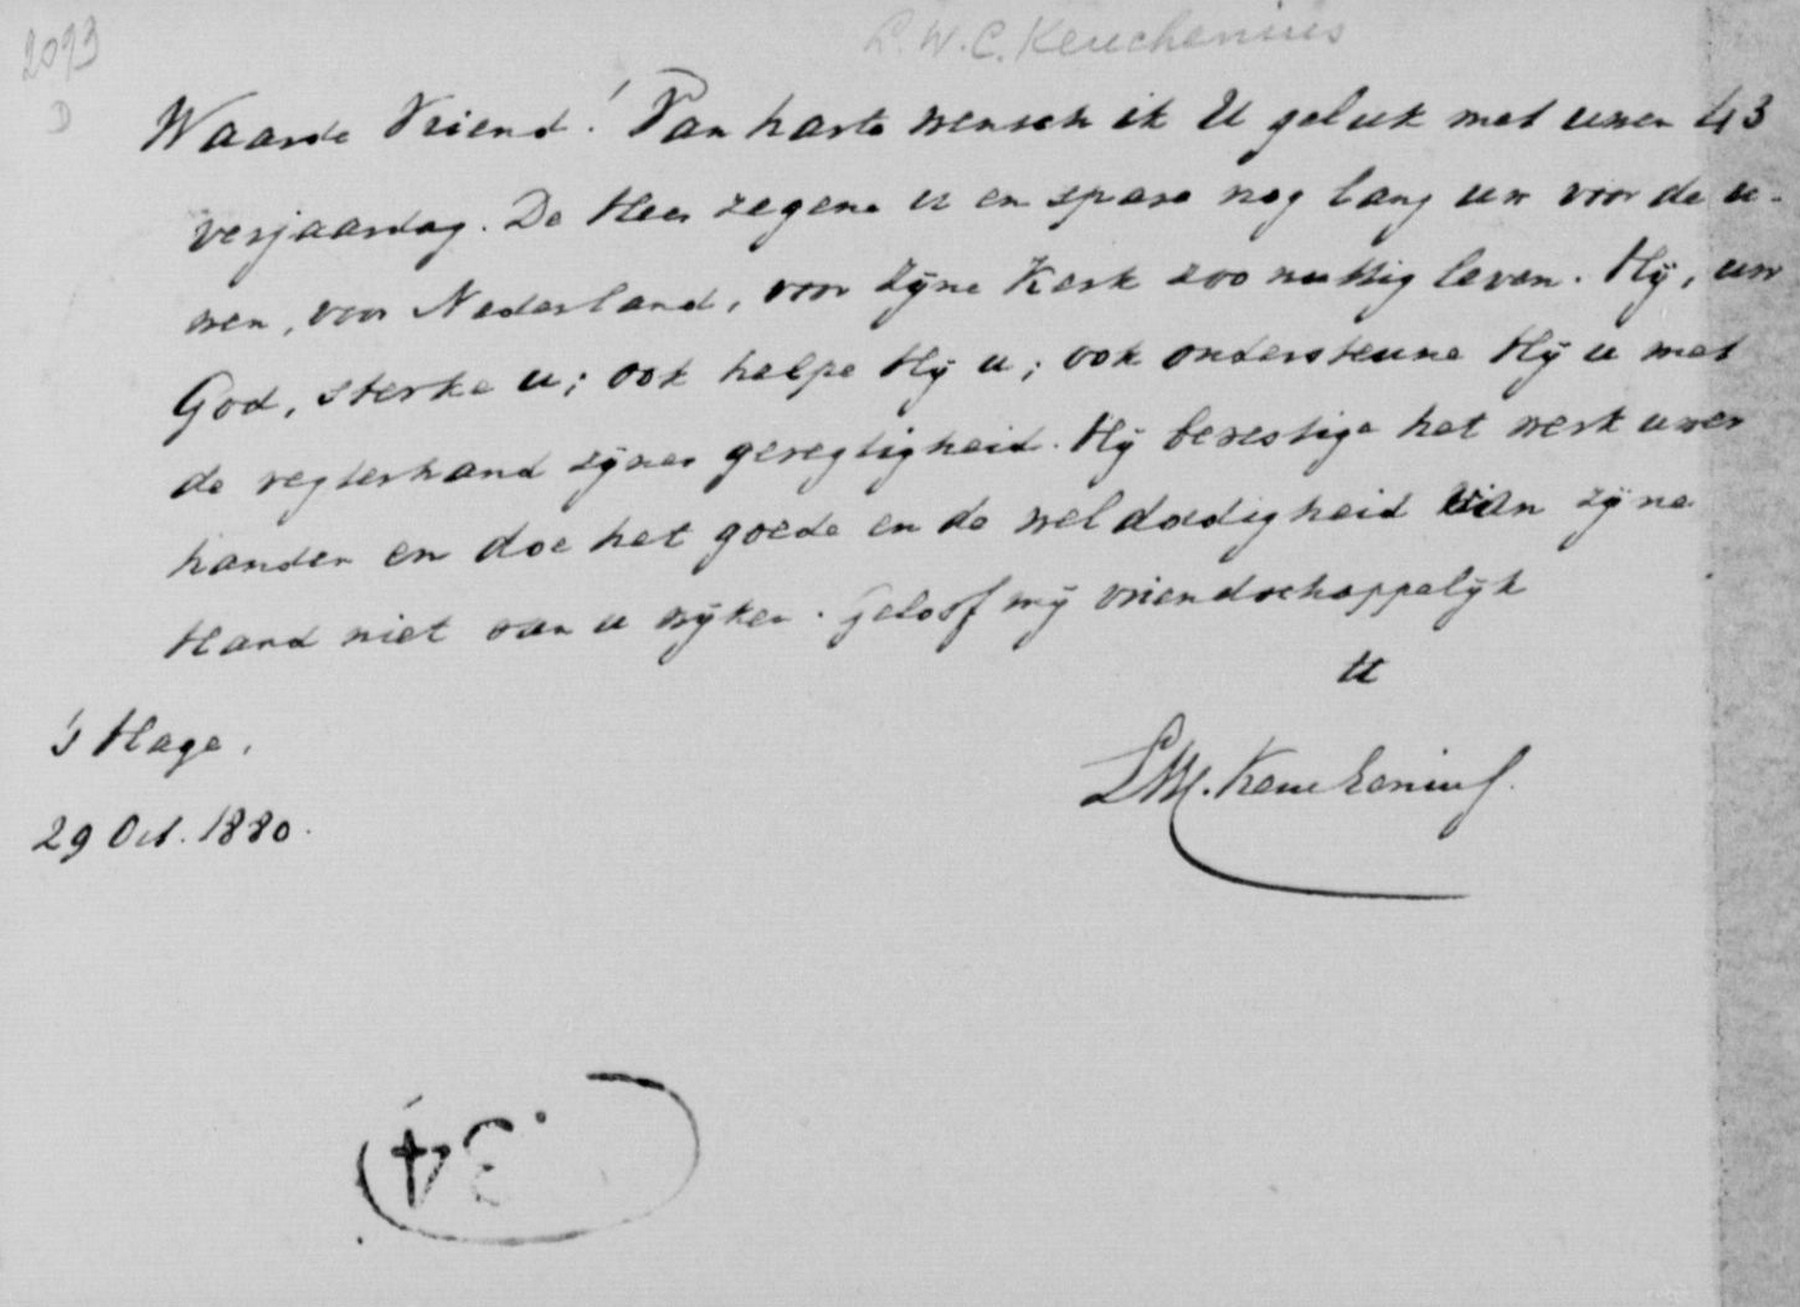 2093
D
L.W.C. Keuchenius
Waarde Vriend! Van harte wensch ik U geluk met uwen 43
verjaardag. De Heer zegene u en spare nog lang uw voor de u-
wen, voor Nederland, voor Zijne Kerk zoo nuttig leven. Hij, uw
God, sterke u; ook helpe Hij u; ook ondersteune Hij u met
de regterhand zijner geregtigheid. Hij bevestige het werk uwer
handen en doe het goede en de weldadigheid van zijne
Hand niet van u wijken. Geloof mij vriendschappelijk
tt
LW. Keuchenius.
's Hage,
29 Oct. 1880.
34